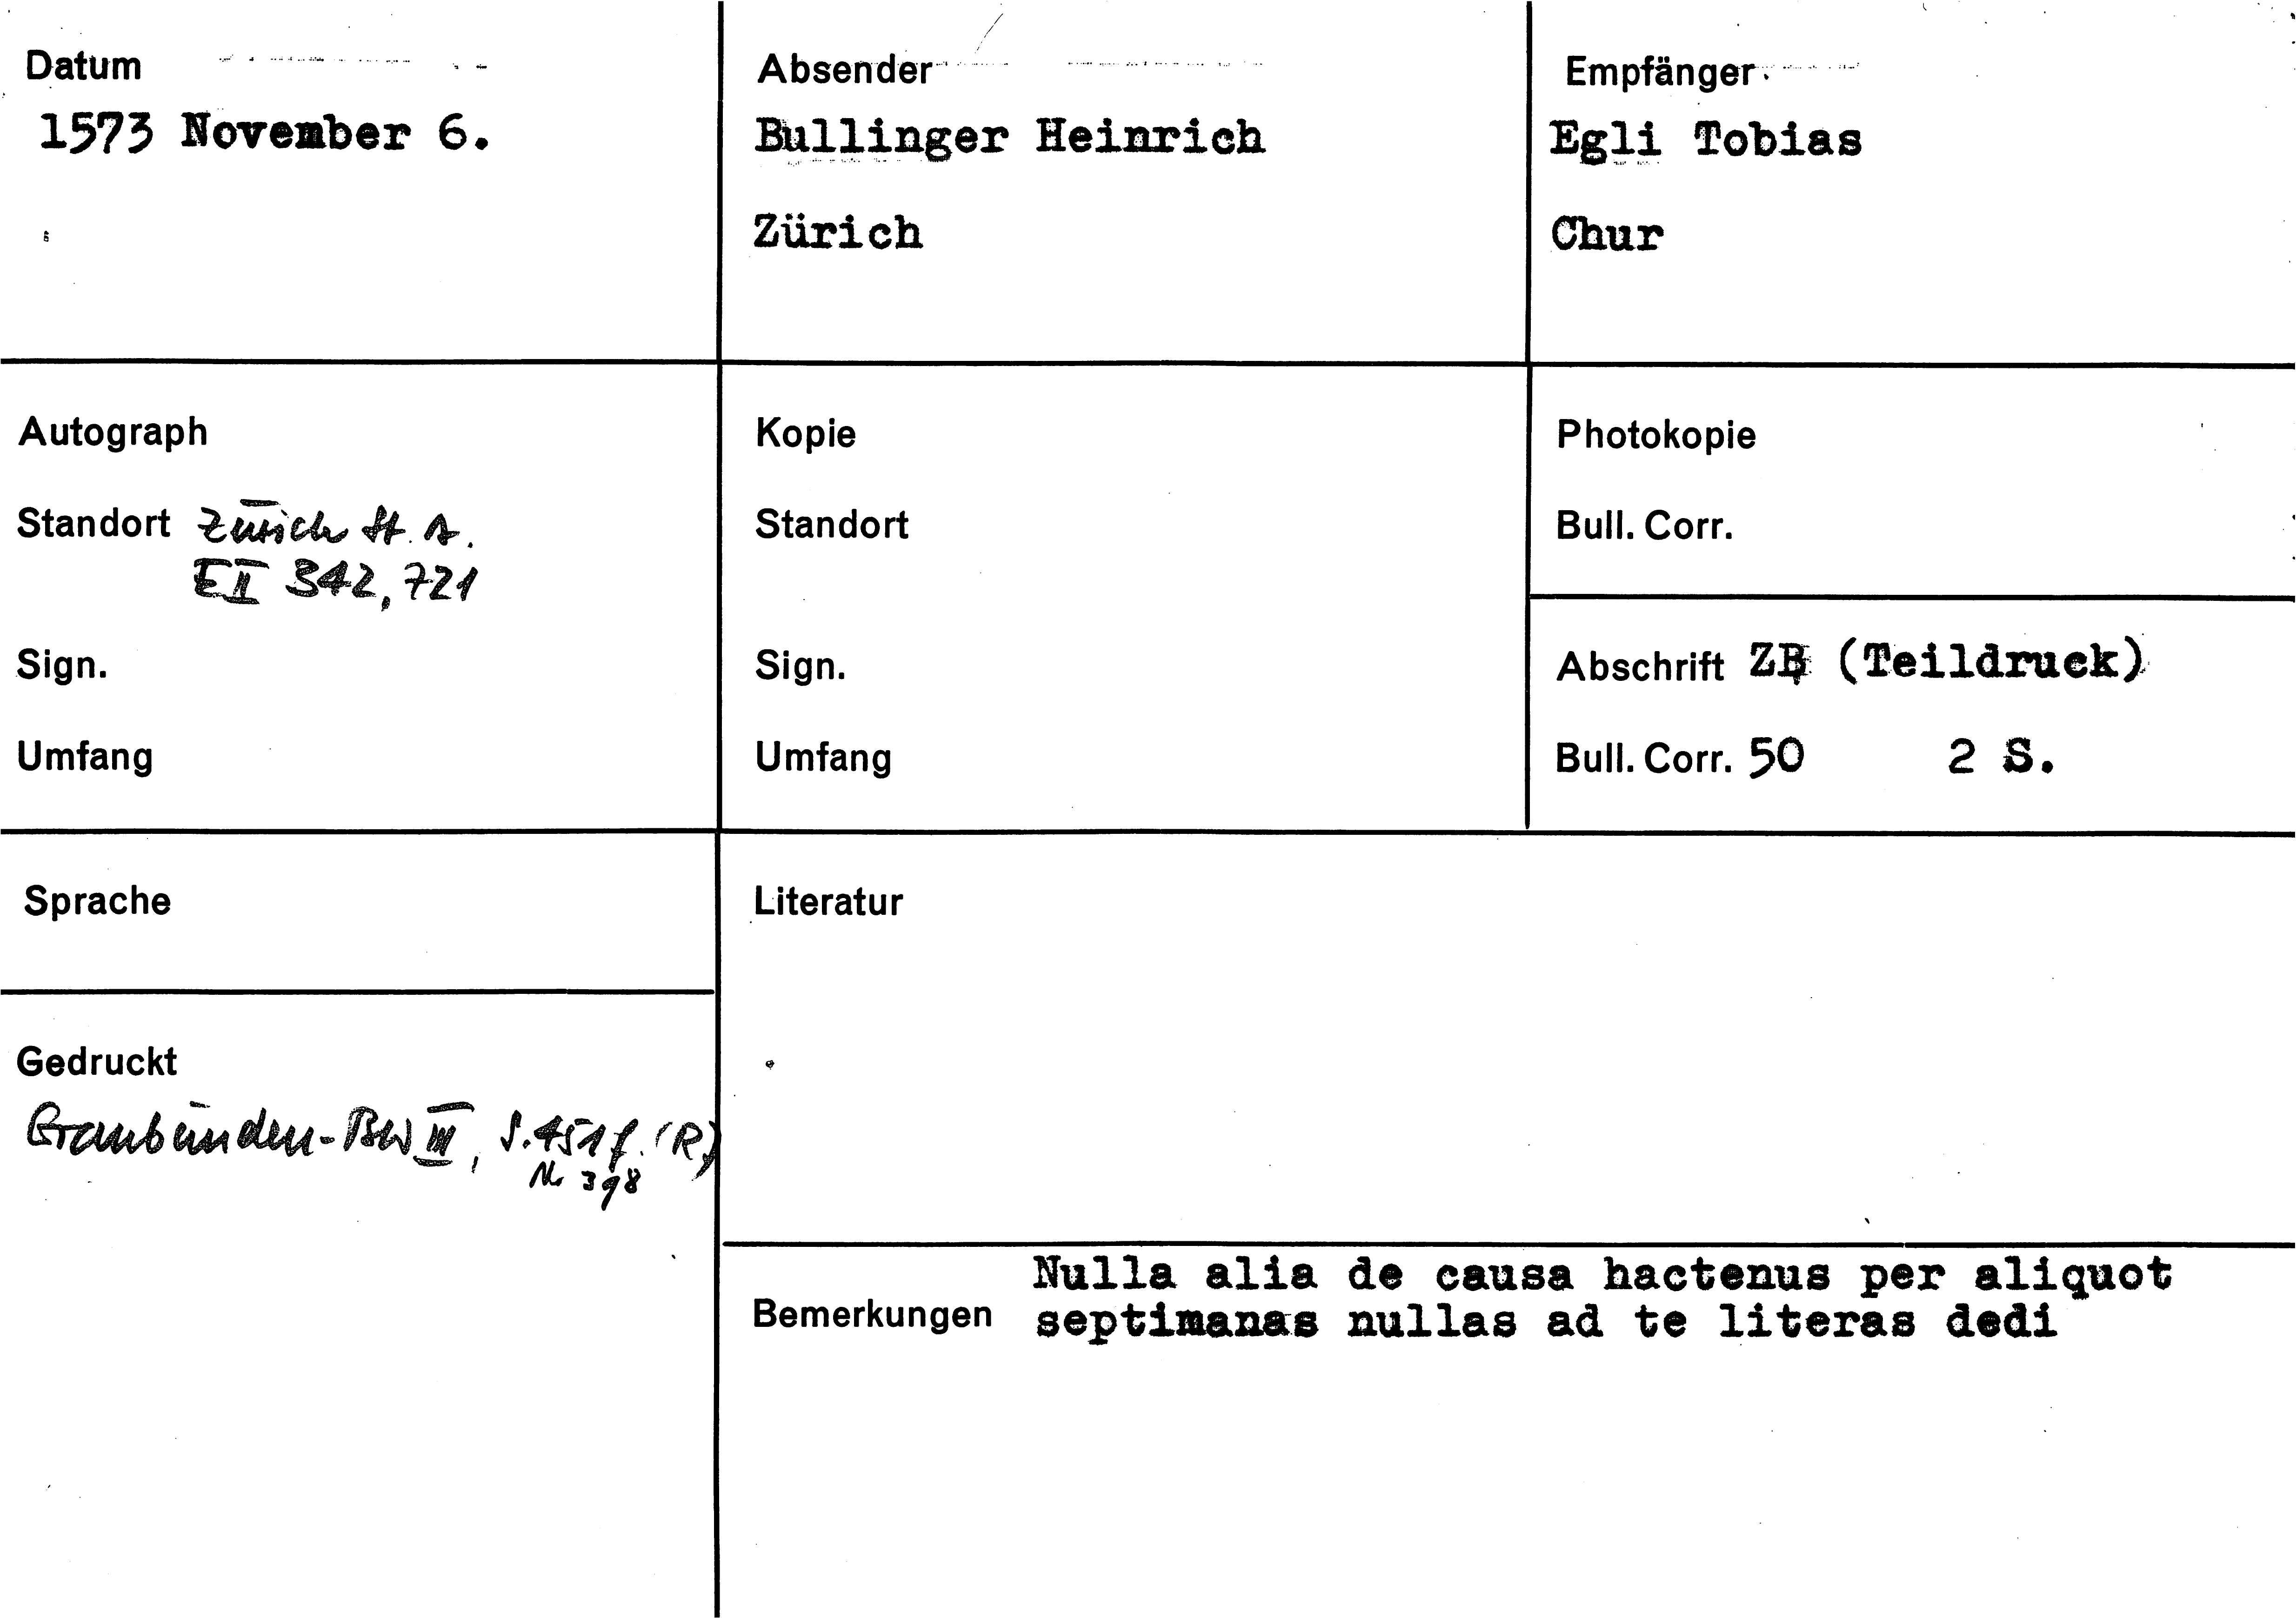 Datum
1573 November 6.
Absender
Bullinger Heinrich
Zürich
Empfänger
Egli Tobias
Chur
Autograph
Standort Zürich St. A.
E II 342, 721
Sign.
Umfang
Kopie
Standort
Sign.
Umfang
Photokopie
Bull. Corr.
Abschrift ZB (Teildruck)
Bull. Corr. 50 2 S.
Sprache
Gedruckt
Graubünden-BW III, S. 451 f. (R)
Nr. 398
Literatur
Bemerkungen
Nulla alia de causa hactenus per aliquot
septimanas nullas ad te literas dedi